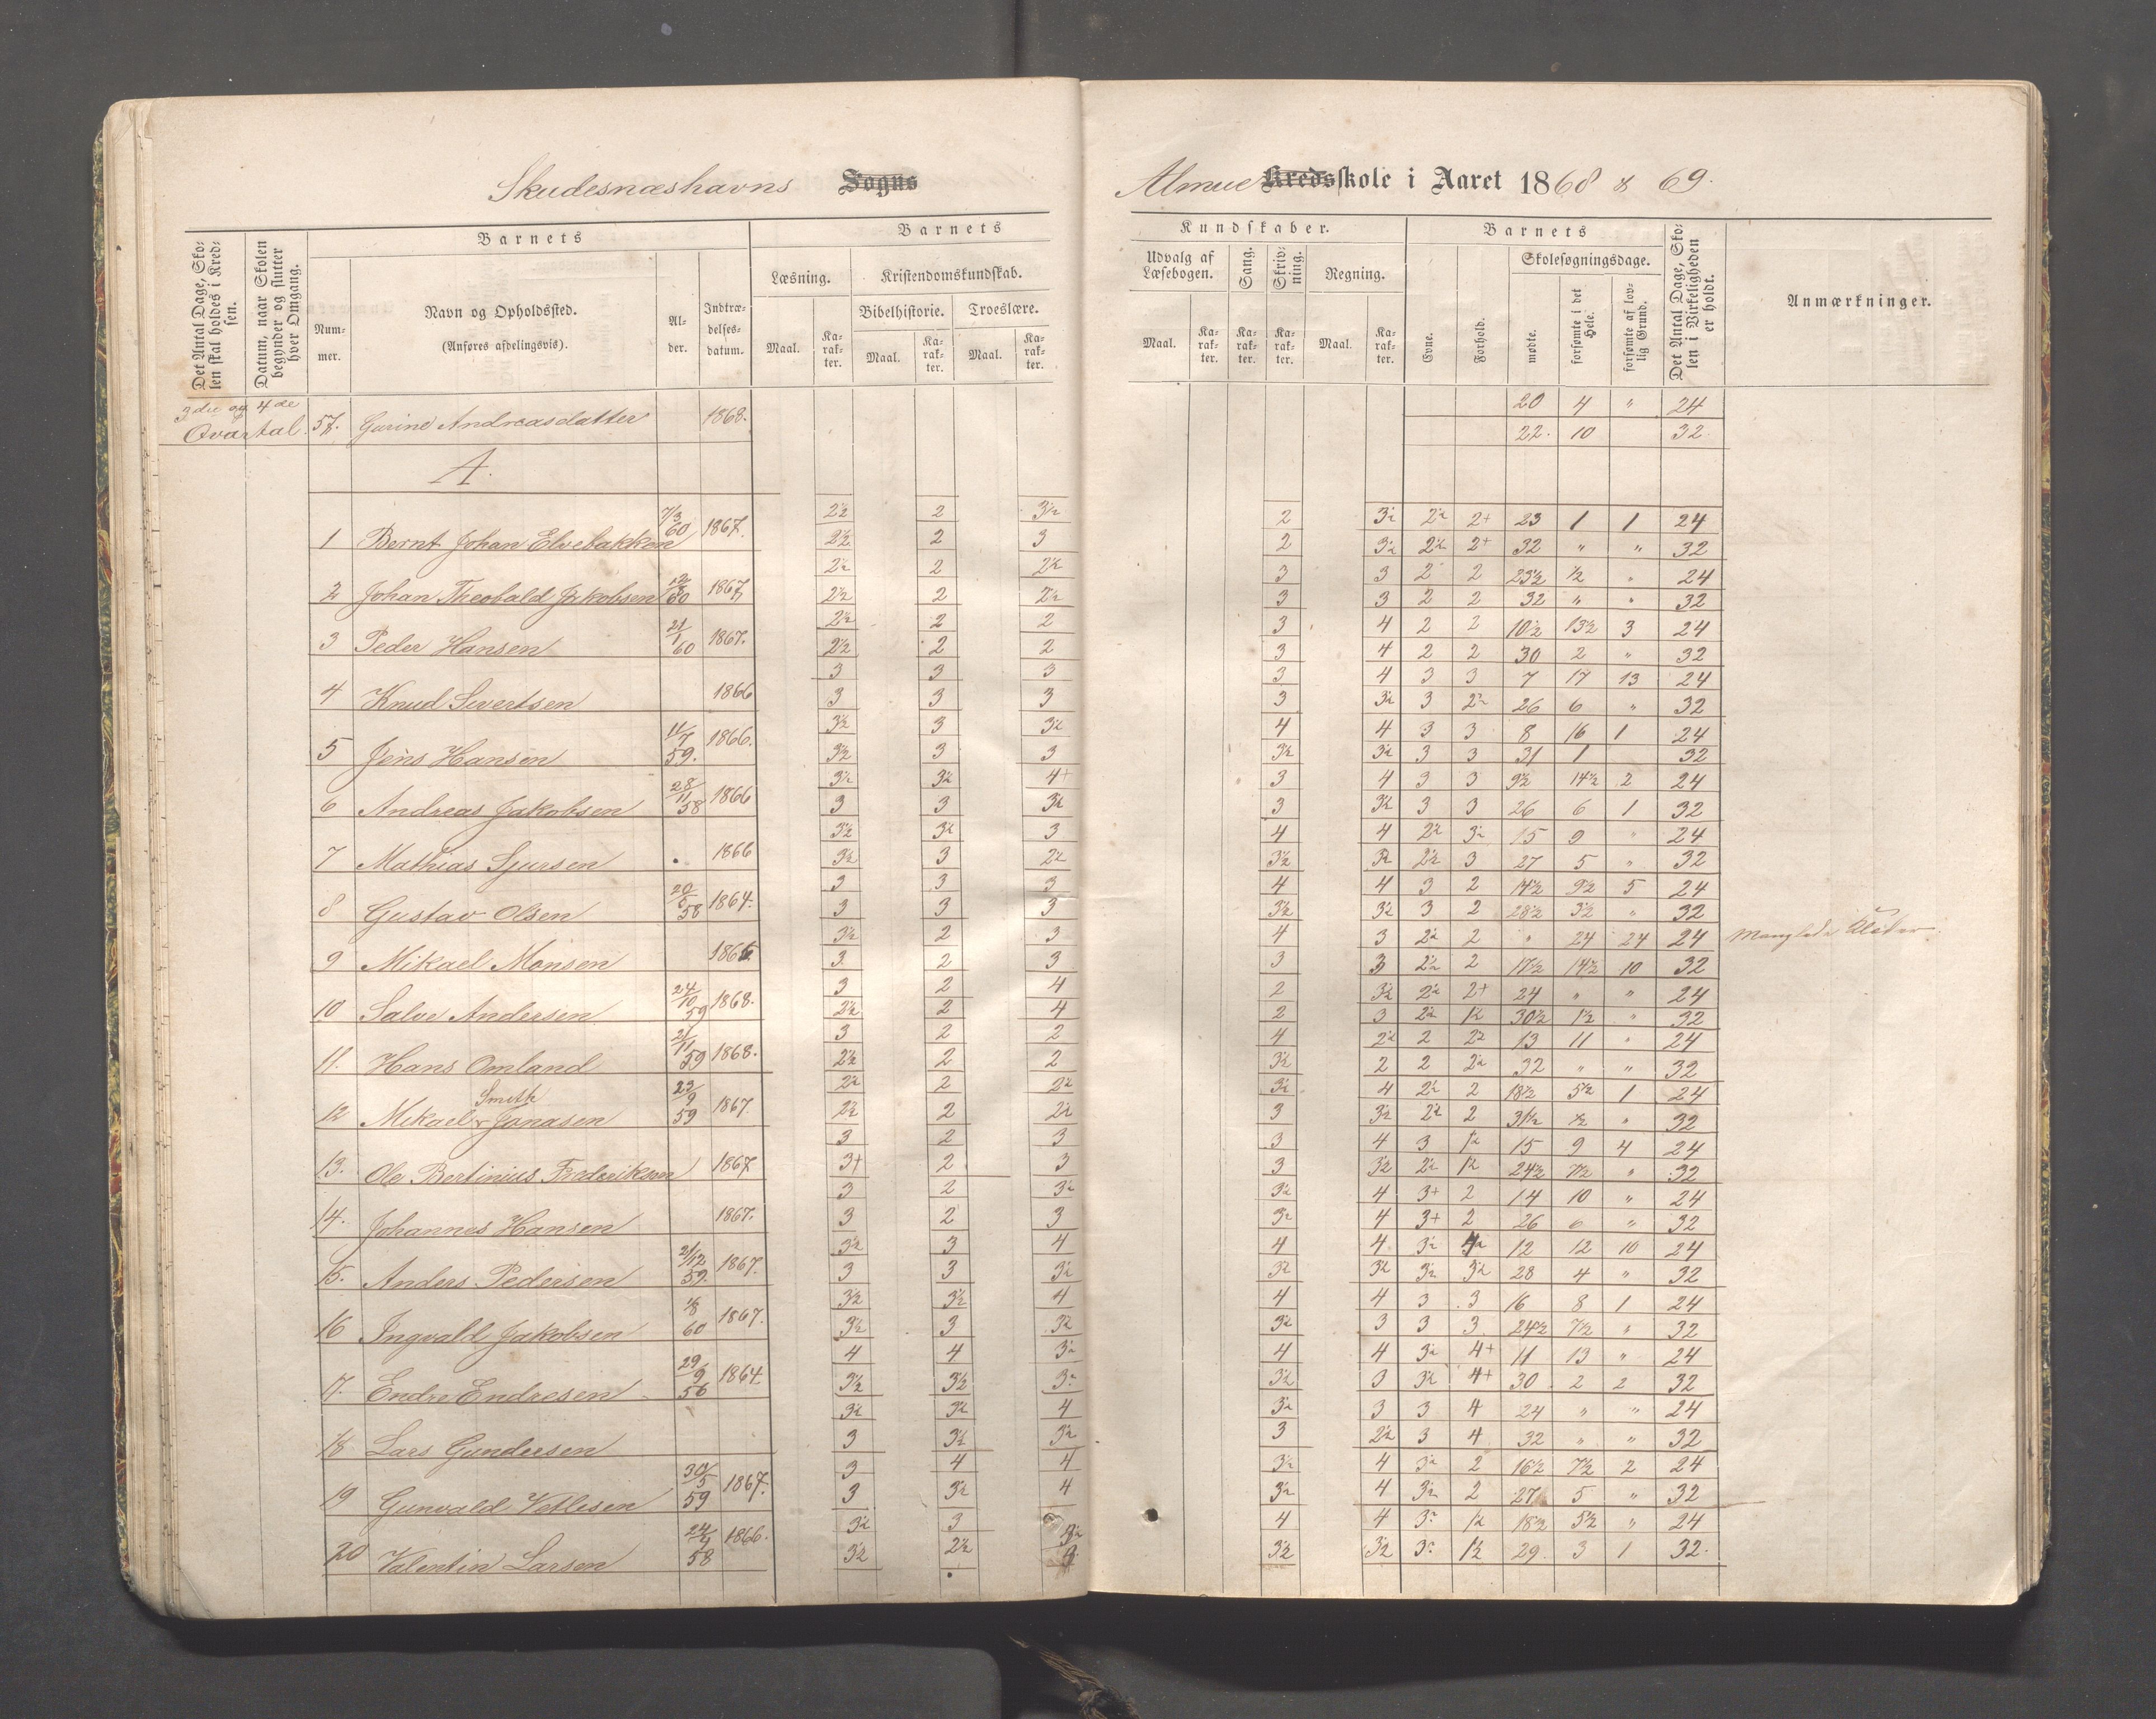 Skudesnæshavns Sogns
Almueskole i Aaret 1868 & 69.
Det Antal Dage, Skolen skal holdes i Kredsen.
Datum, naar Skolen begynder og slutter hver Omgang.
Barnets
Nummer.
Navn og Opholdssted.
(Anføres afdelingsvis).
Alder.
Indtrædelsesdatum.
Barnets
Læsning.
Kristendomskundskab.
Bibelhistorie.
Troeslære.
Maal.
Karakter.
Maal.
Karakter.
Maal.
Karakter.
Kundskaber.
Udvalg af Læsebogen.
Sang.
Skrivning.
Regning.
Maal.
Karakter.
Karakter.
Karakter.
Maal.
Karakter.
Barnets
Evne.
Forhold.
Skolesøgningsdage.
mødte.
forsømte i det Hele.
forsømte af lovlig Grund.
Det Antal Dage, Skolen i Virkeligheden er holdt.
Anmærkninger.
3die og 4de Qvartal. 57. Gurine Andreasdatter 1868. 20 4 " 24
22. 10 32.
A.
2½ 2 3½ 2 3½ 2½ 2+ 23 1 1 24
1 Bernt Johan Elvebakken 7/3 60 1867. 2½ 2 3 2 3½ 2½ 2+ 32 " " 32
2½ 2 2½ 3 3 2 2 23½ ½ " 24
2 Johan Theobald Jakobsen 1867. 2½ 2 2½ 3 3 2 2 32 " " 32
2½ 2 2 3 4 2 2 10½ 13½ 3 24
3 Peder Hansen 21/1 60 1867. 2½ 2 2 3 4 2 2 30 2 " 32
3 3 3 3 4 3 3 7 17 13 24
4 Knud Sivertsen 1866 3 3 3 3 3½ 3 2½ 26 6 " 32
3½ 3 3½ 4 4 3 3 8 16 1 24
5 Jens Hansen 11/7 59. 1866. 3½ 3 3 3½ 3½ 3 3 31 1 32
3½ 3½ 4+ 3 4 3 3 9½ 14½ 2 24
6 Andreas Jakobsen 28/11 58 1866 3 3 3½ 3 3½ 3 3 26 6 1 32
3½ 3½ 3 4 4 2½ 3½ 15 9 " 24
7 Mathias Sjursen 1866 3½ 3 2½ 3½ 3½ 2½ 3 27 5 " 32
3 3 3 4 4 3 2 14½ 9½ 5 24
8 Gustav Olsen 20/5 58 1864. 3 3 3 3½ 3½ 3 2 28½ 3½ " 32
3½ 2 3 4 3 2½ 2 " 24 24 24 Manglede Klæder
9 Mikael Monsen 3 2 3 3 3 2½ 2 17½ 14½ 10 32
3 2 4 2 3½ 2½ 2+ 24 " " 24
10 Salve Andersen 24/10 59 1868. 2½ 2 4 2 3 2½ 1½ 30½ 1½ " 32
3 2 2 4 2½ 2 2½ 13 11 " 24
11. Hans Omland 21/11 59 1868. 2½ 2 2 3½ 2 2 2½ 32 " " 32
2½ 2 2½ 3½ 4 2½ 2 18½ 5½ 1 24
12 Mikael Smith Jonasen 23/9 59 1867. 2½ 2 2½ 3 3½ 2½ 2 31½ ½ " 32
3 2 3 3 4 3 1½ 15 9 4 24
13. Ole Bertinius Frederiksen 1867 3+ 2 3 3 3½ 2½ 1½ 24½ 7½ " 32
3 2 3½ 3½ 4 3+ 2 14 10 " 24
14. Johannes Hansen 1867. 3 2 3 3½ 4 3+ 2 26 6 " 32
3½ 3 4 4 4 3½ 12 12 10 24
15. Anders Pedersen 21/12 59. 1867. 3 3 3½ 3½ 3½ 3½ 3½ 28 4 " 32
3½ 3½ 4 4 4 3 3 16 8 1 24
16 Ingvald Jakobsen 1/8 60 1867. 3½ 3 3½ 3½ 3 3 3 24½ 7½ " 32
4 4 3½ 4 4 3½ 4+ 11 13 " 24
17. Endre Endresen 29/9 56 1864. 3½ 3½ 3½ 3½ 3 3½ 4+ 30 2 2 32
3½ 3½ 4 3½ 3 3 4 24 " " 24
18 Lars Gundersen 3 3½ 3½ 3 2½ 3 4 32 " " 32
3 4 4 3½ 4 3½ 2 16½ 7½ 2 24
19 Gunvald Vetlesen 30/5 59 1867. 3 3½ 4 3½ 4 3½ 2 27 5 " 32
3½ 3 3½ 4 4 3½ 1½ 18½ 5½ " 24
20 Valentin Larsen 1866. 3½ 2½ 3½ 3½ 3½ 1½ 29. 3 1 32.